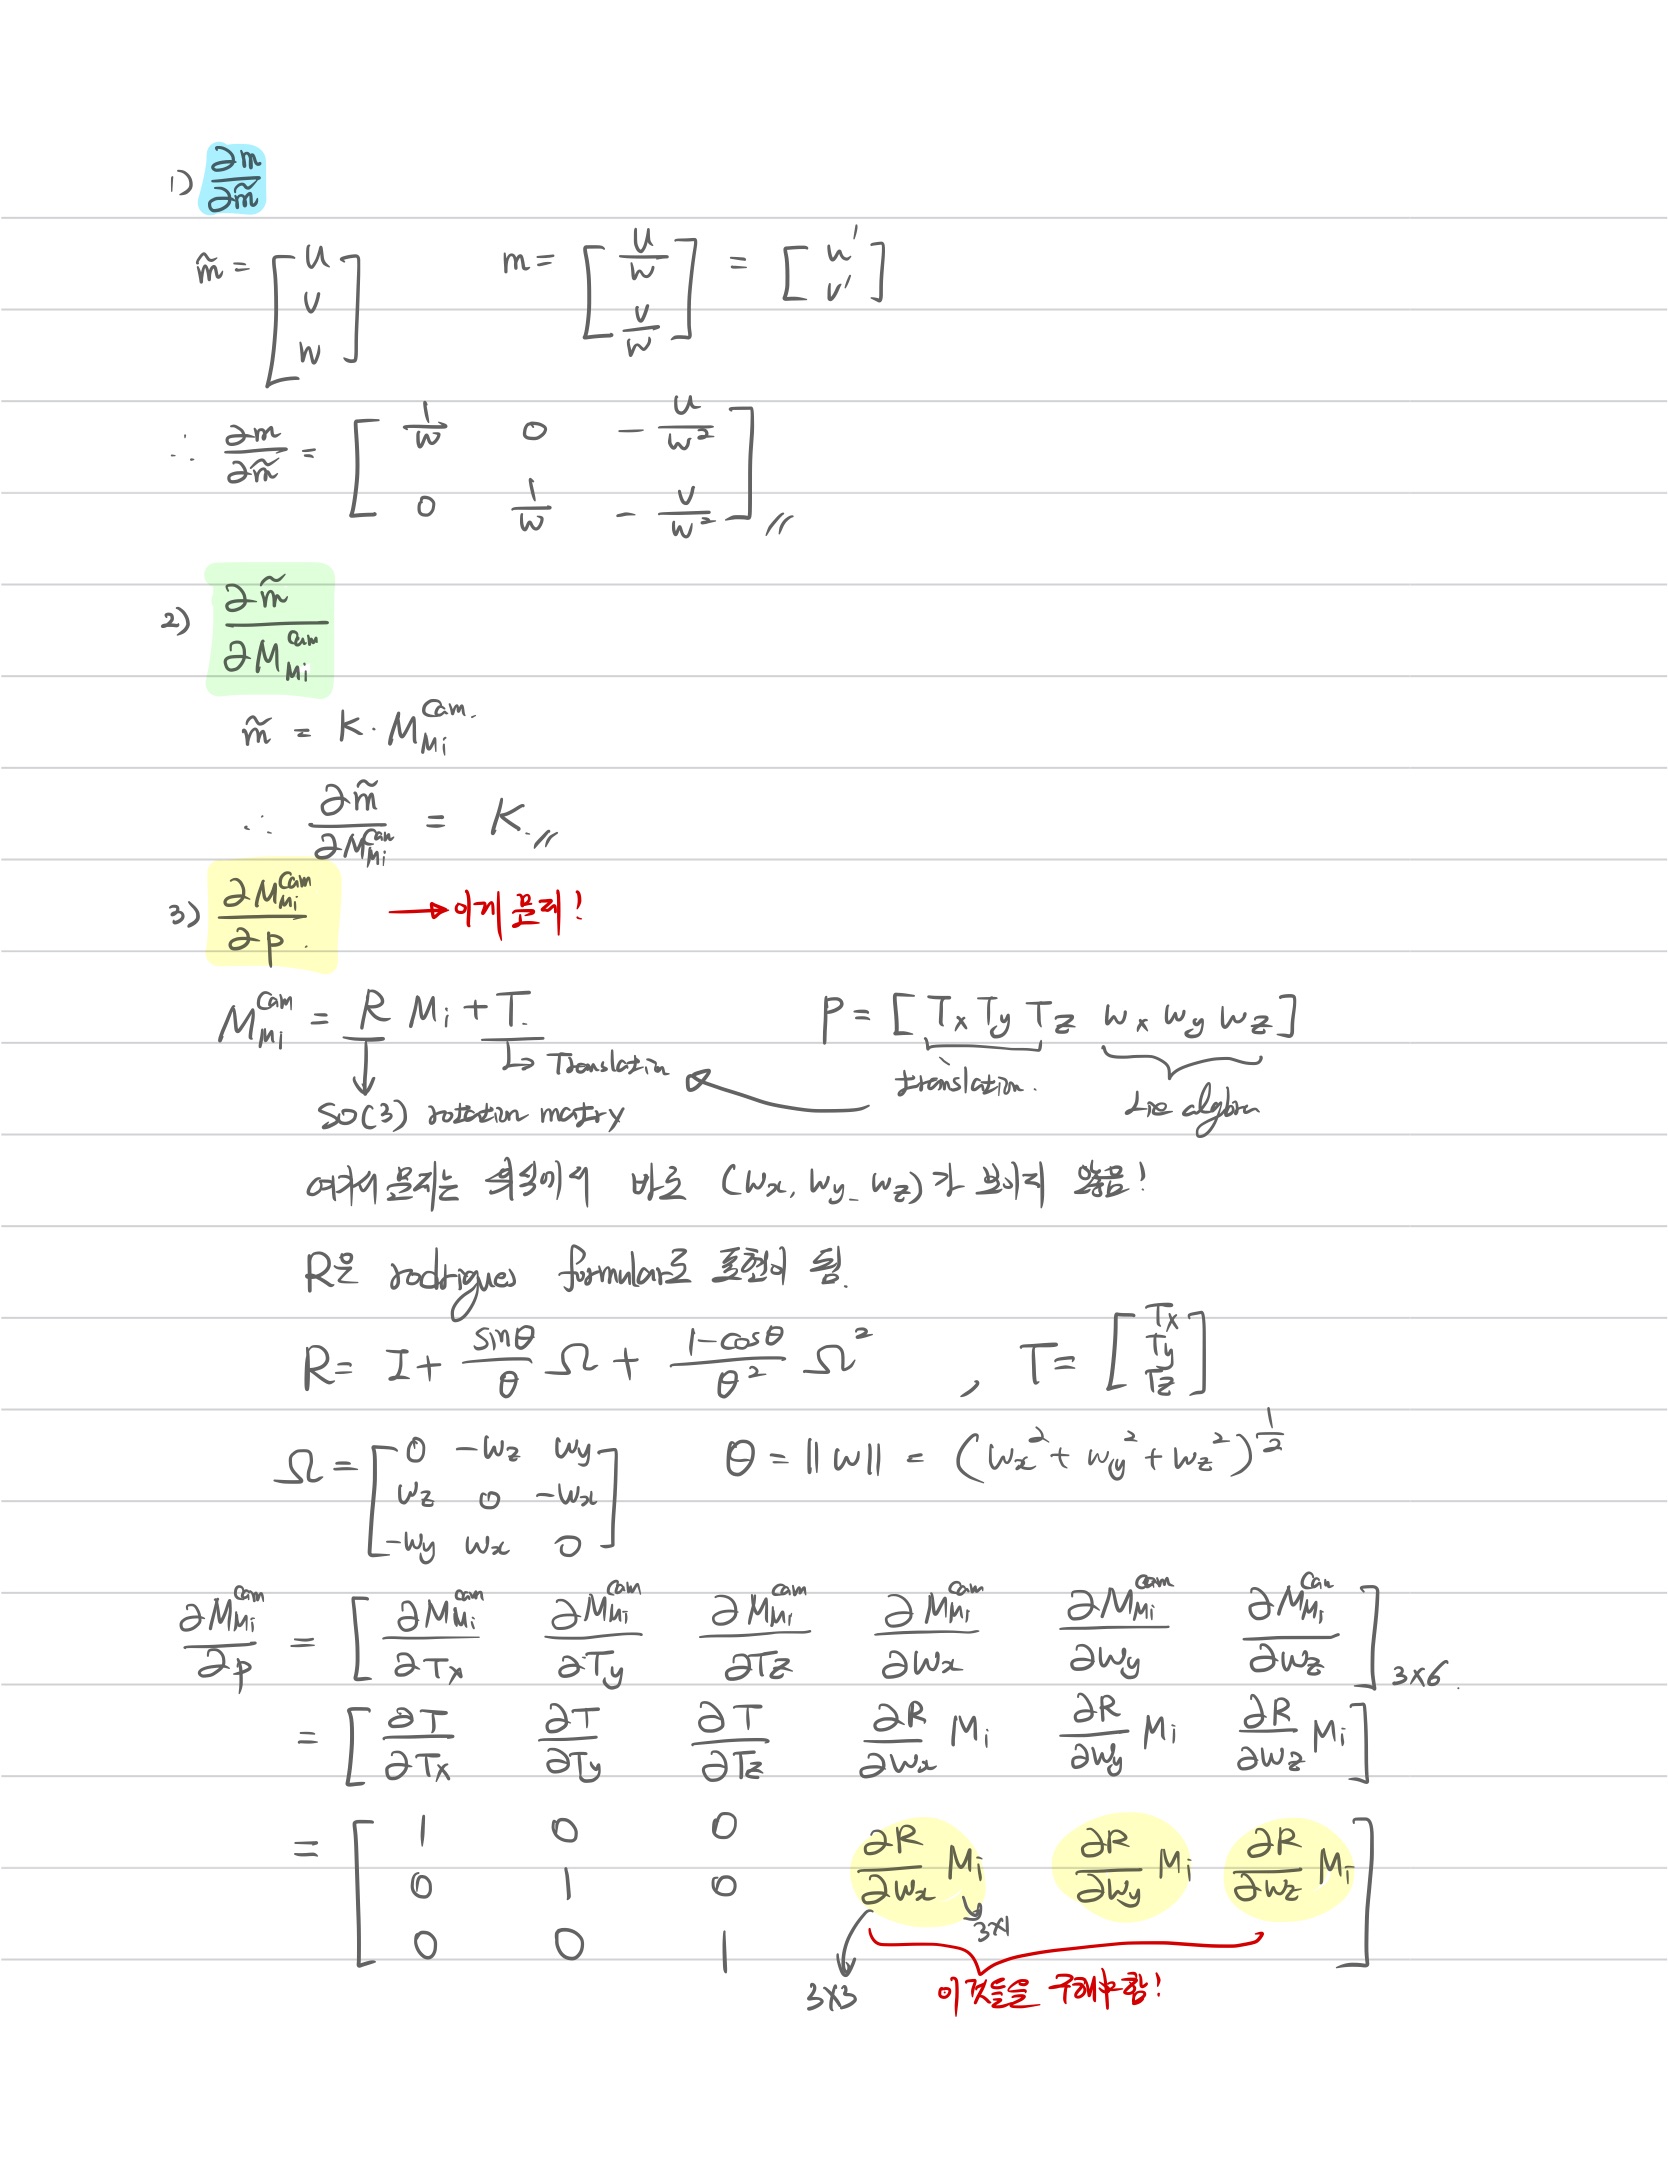 1) ∂m/∂m̃
m̃ = [u v w] m = [u/w v/w] = [u' v']
∴ ∂m/∂m̃ = [1/w 0 -u/w² 0 1/w -v/w²] //
2) ∂m̃/∂M_Mi^Cam
m̃ = K · M_Mi^Cam.
∴ ∂m̃/∂M_Mi^Cam = K. //
3) ∂M_Mi^Cam/∂p. → 이게 문제!
M_Mi^Cam = R Mi + T. P = [Tx Ty Tz wx wy wz]
↳ Translation translation.
SO(3) rotation matrx Lie algbra
여기서 문제는 위식에서 바로 (wx, wy, wz)가 보이지 않음!
R은 rodrigues formular로 표현이 됨.
R = I + sinθ/θ Ω + 1-cosθ/θ² Ω² , T = [Tx Ty Tz]
Ω = [0 -wz wy wz 0 -wx -wy wx 0] θ = ||w|| = (wx² + wy² + wz²)^1/2
∂M_Mi^Cam/∂p = [∂M_Mi^Cam/∂Tx ∂M_Mi^Cam/∂Ty ∂M_Mi^Cam/∂Tz ∂M_Mi^Cam/∂wx ∂M_Mi^Cam/∂wy ∂M_Mi^Cam/∂wz] 3×6.
= [∂T/∂Tx ∂T/∂Ty ∂T/∂Tz ∂R/∂wx Mi ∂R/∂wy Mi ∂R/∂wz Mi]
= [1 0 0 ∂R/∂wx Mi ∂R/∂wy Mi ∂R/∂wz Mi]
0 1 0
3×1
0 0 1
3×3 이것들을 구해야함!